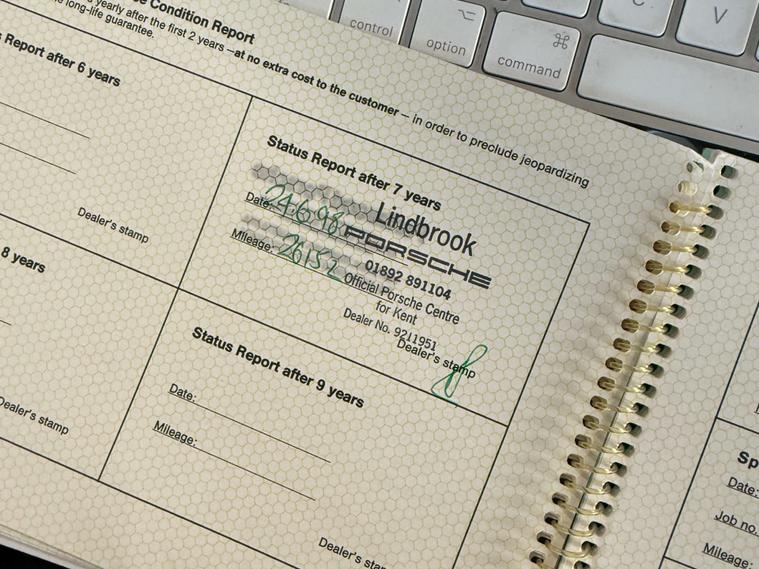 control
option
command
C
V
Condition Report
yearly after the first 2 years – at no extra cost to the customer – in order to preclude jeopardizing
the long-life guarantee.
Status Report after 6 years
Dealer's stamp
Status Report after 7 years
Date: 24.6.98
Mileage: 26152
Lindbrook
PORSCHE
01892 891104
Official Porsche Centre
for Kent
Dealer No. 9211951
Dealer's stamp
8 years
Dealer's stamp
Status Report after 9 years
Date:
Mileage:
Dealer's stamp
Sp
Date:
Job no.
Mileage: